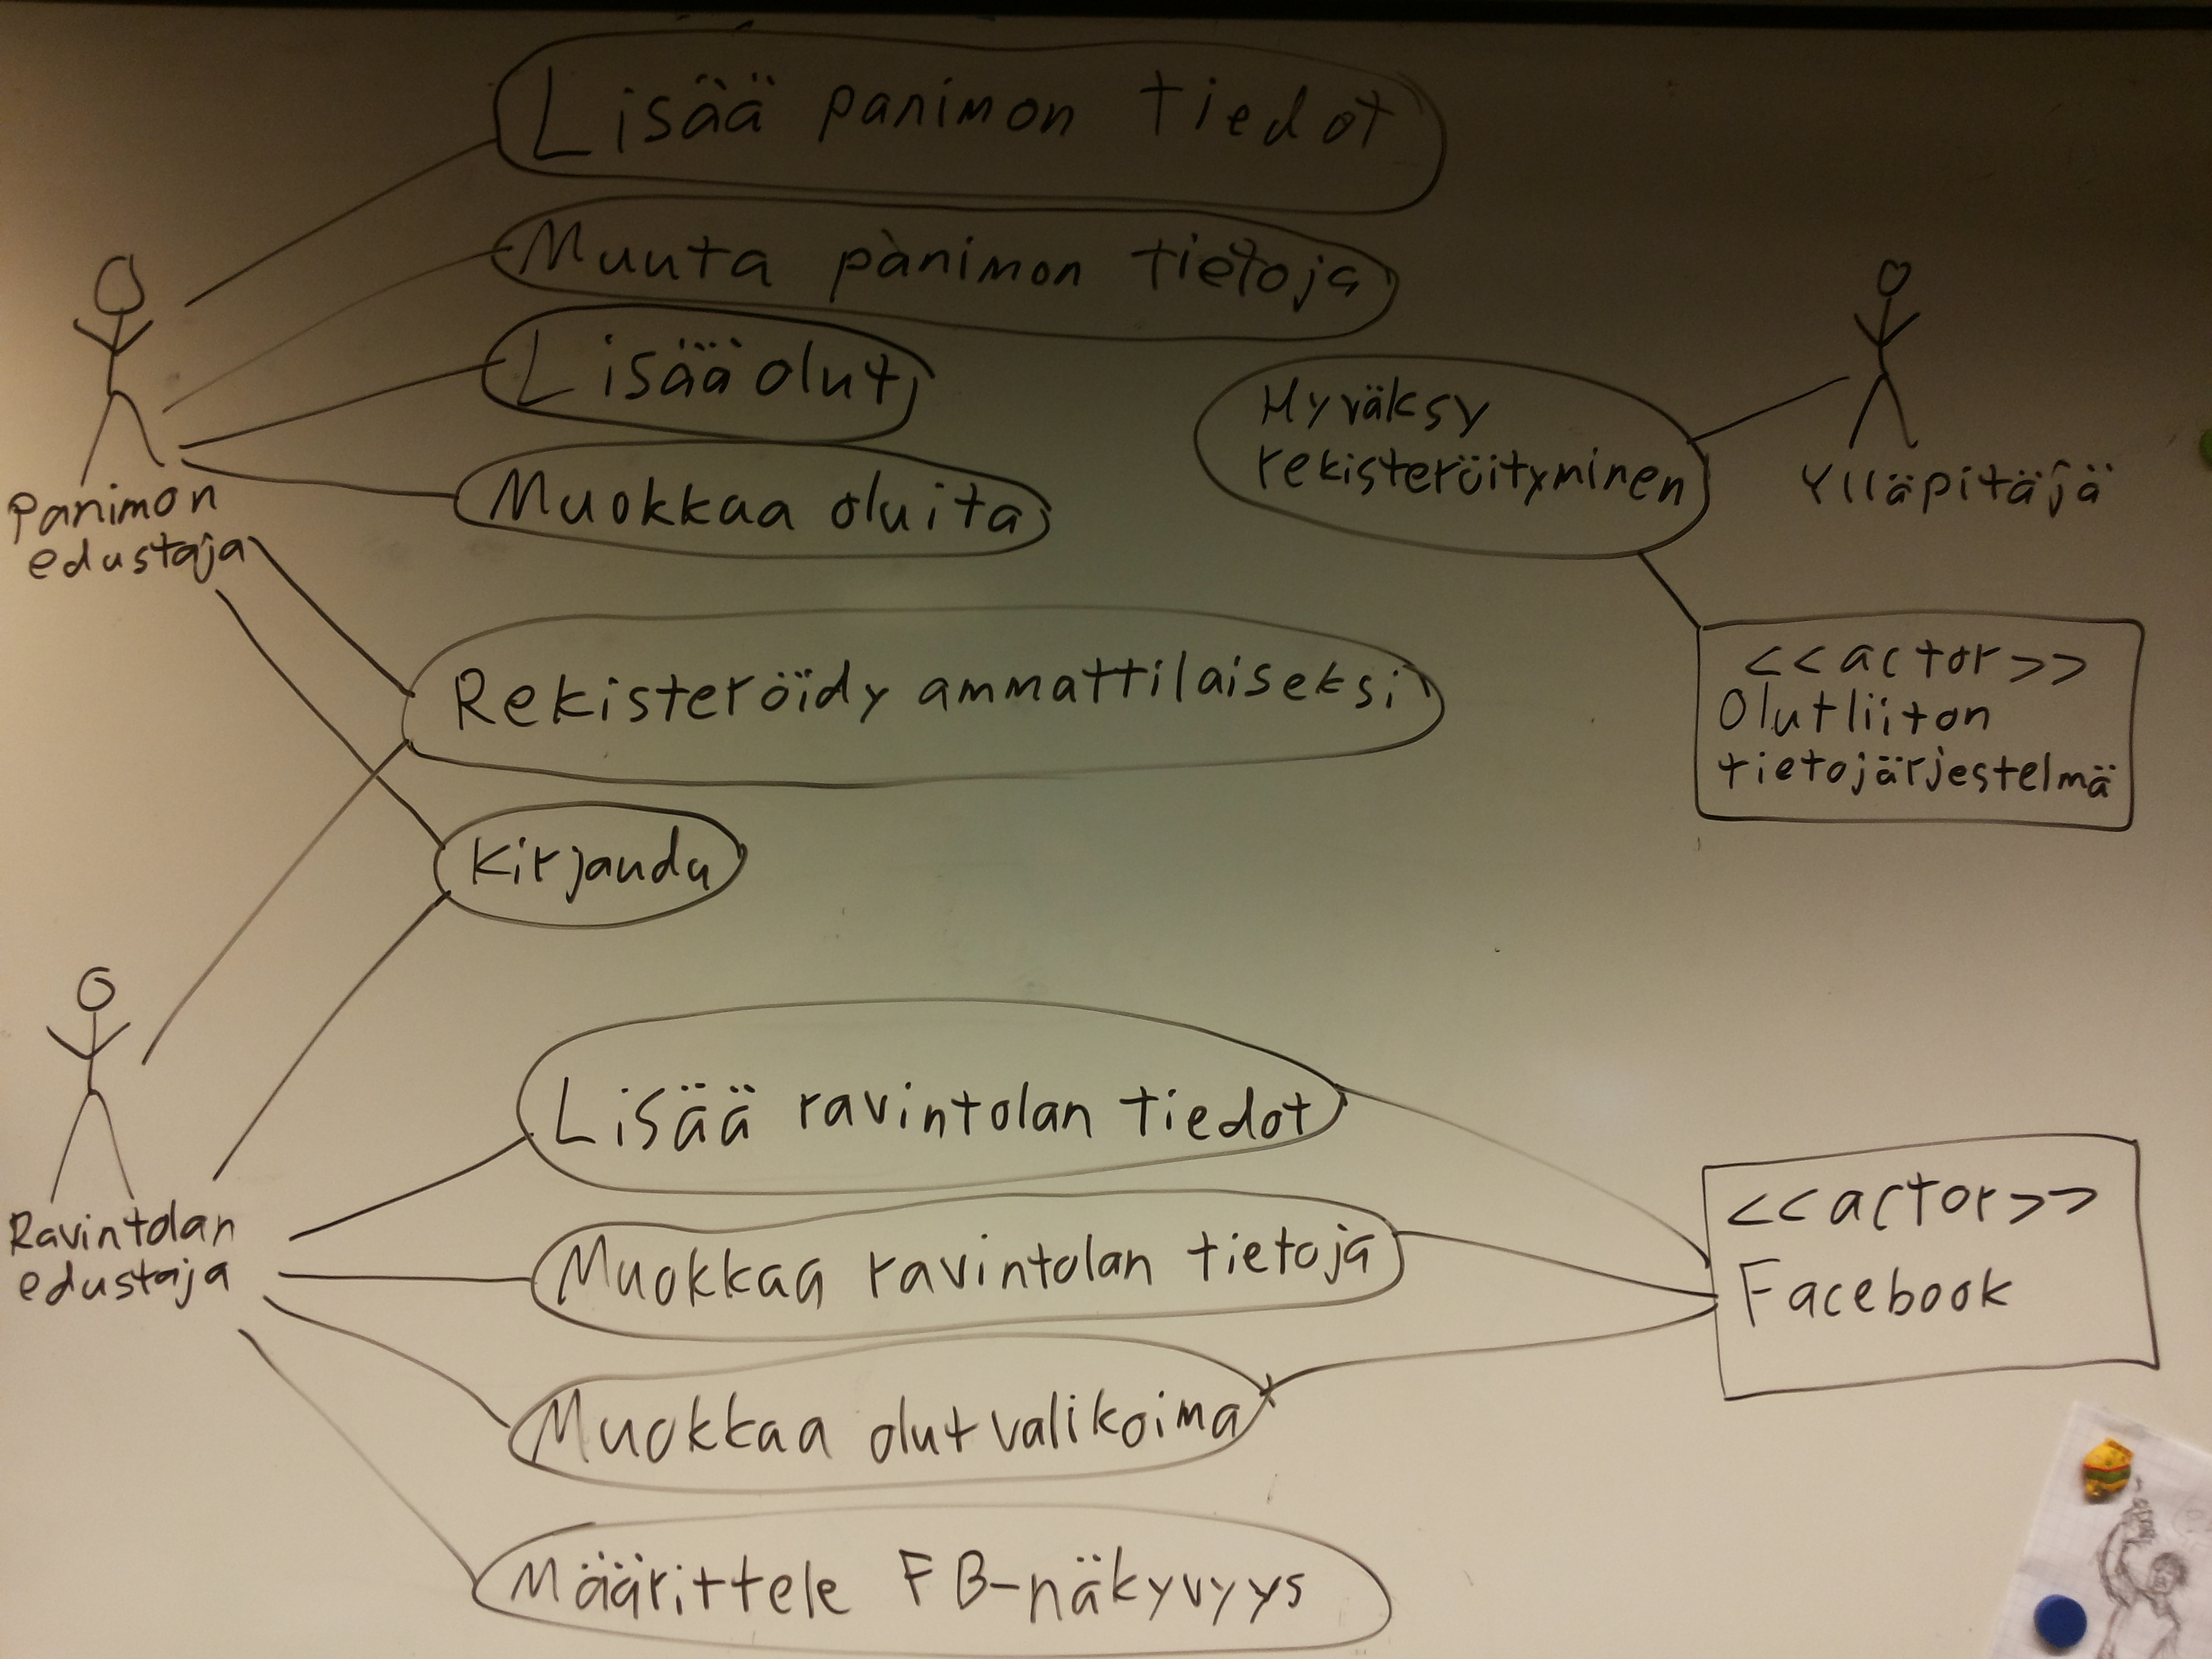 Lisää panimon tiedot
Muuta panimon tietoja
Lisää olut
Muokkaa oluita
Panimon
edustaja
Hyväksy
rekisteröityminen
Ylläpitäjä
<<actor>>
Olutliiton
tietojärjestelmä
Rekisteröidy ammattilaiseksi
Kirjaudu
Ravintolan
edustaja
Lisää ravintolan tiedot
Muokkaa ravintolan tietoja
Muokkaa olutvalikoima
Määrittele FB-näkyvyys
<<actor>>
Facebook